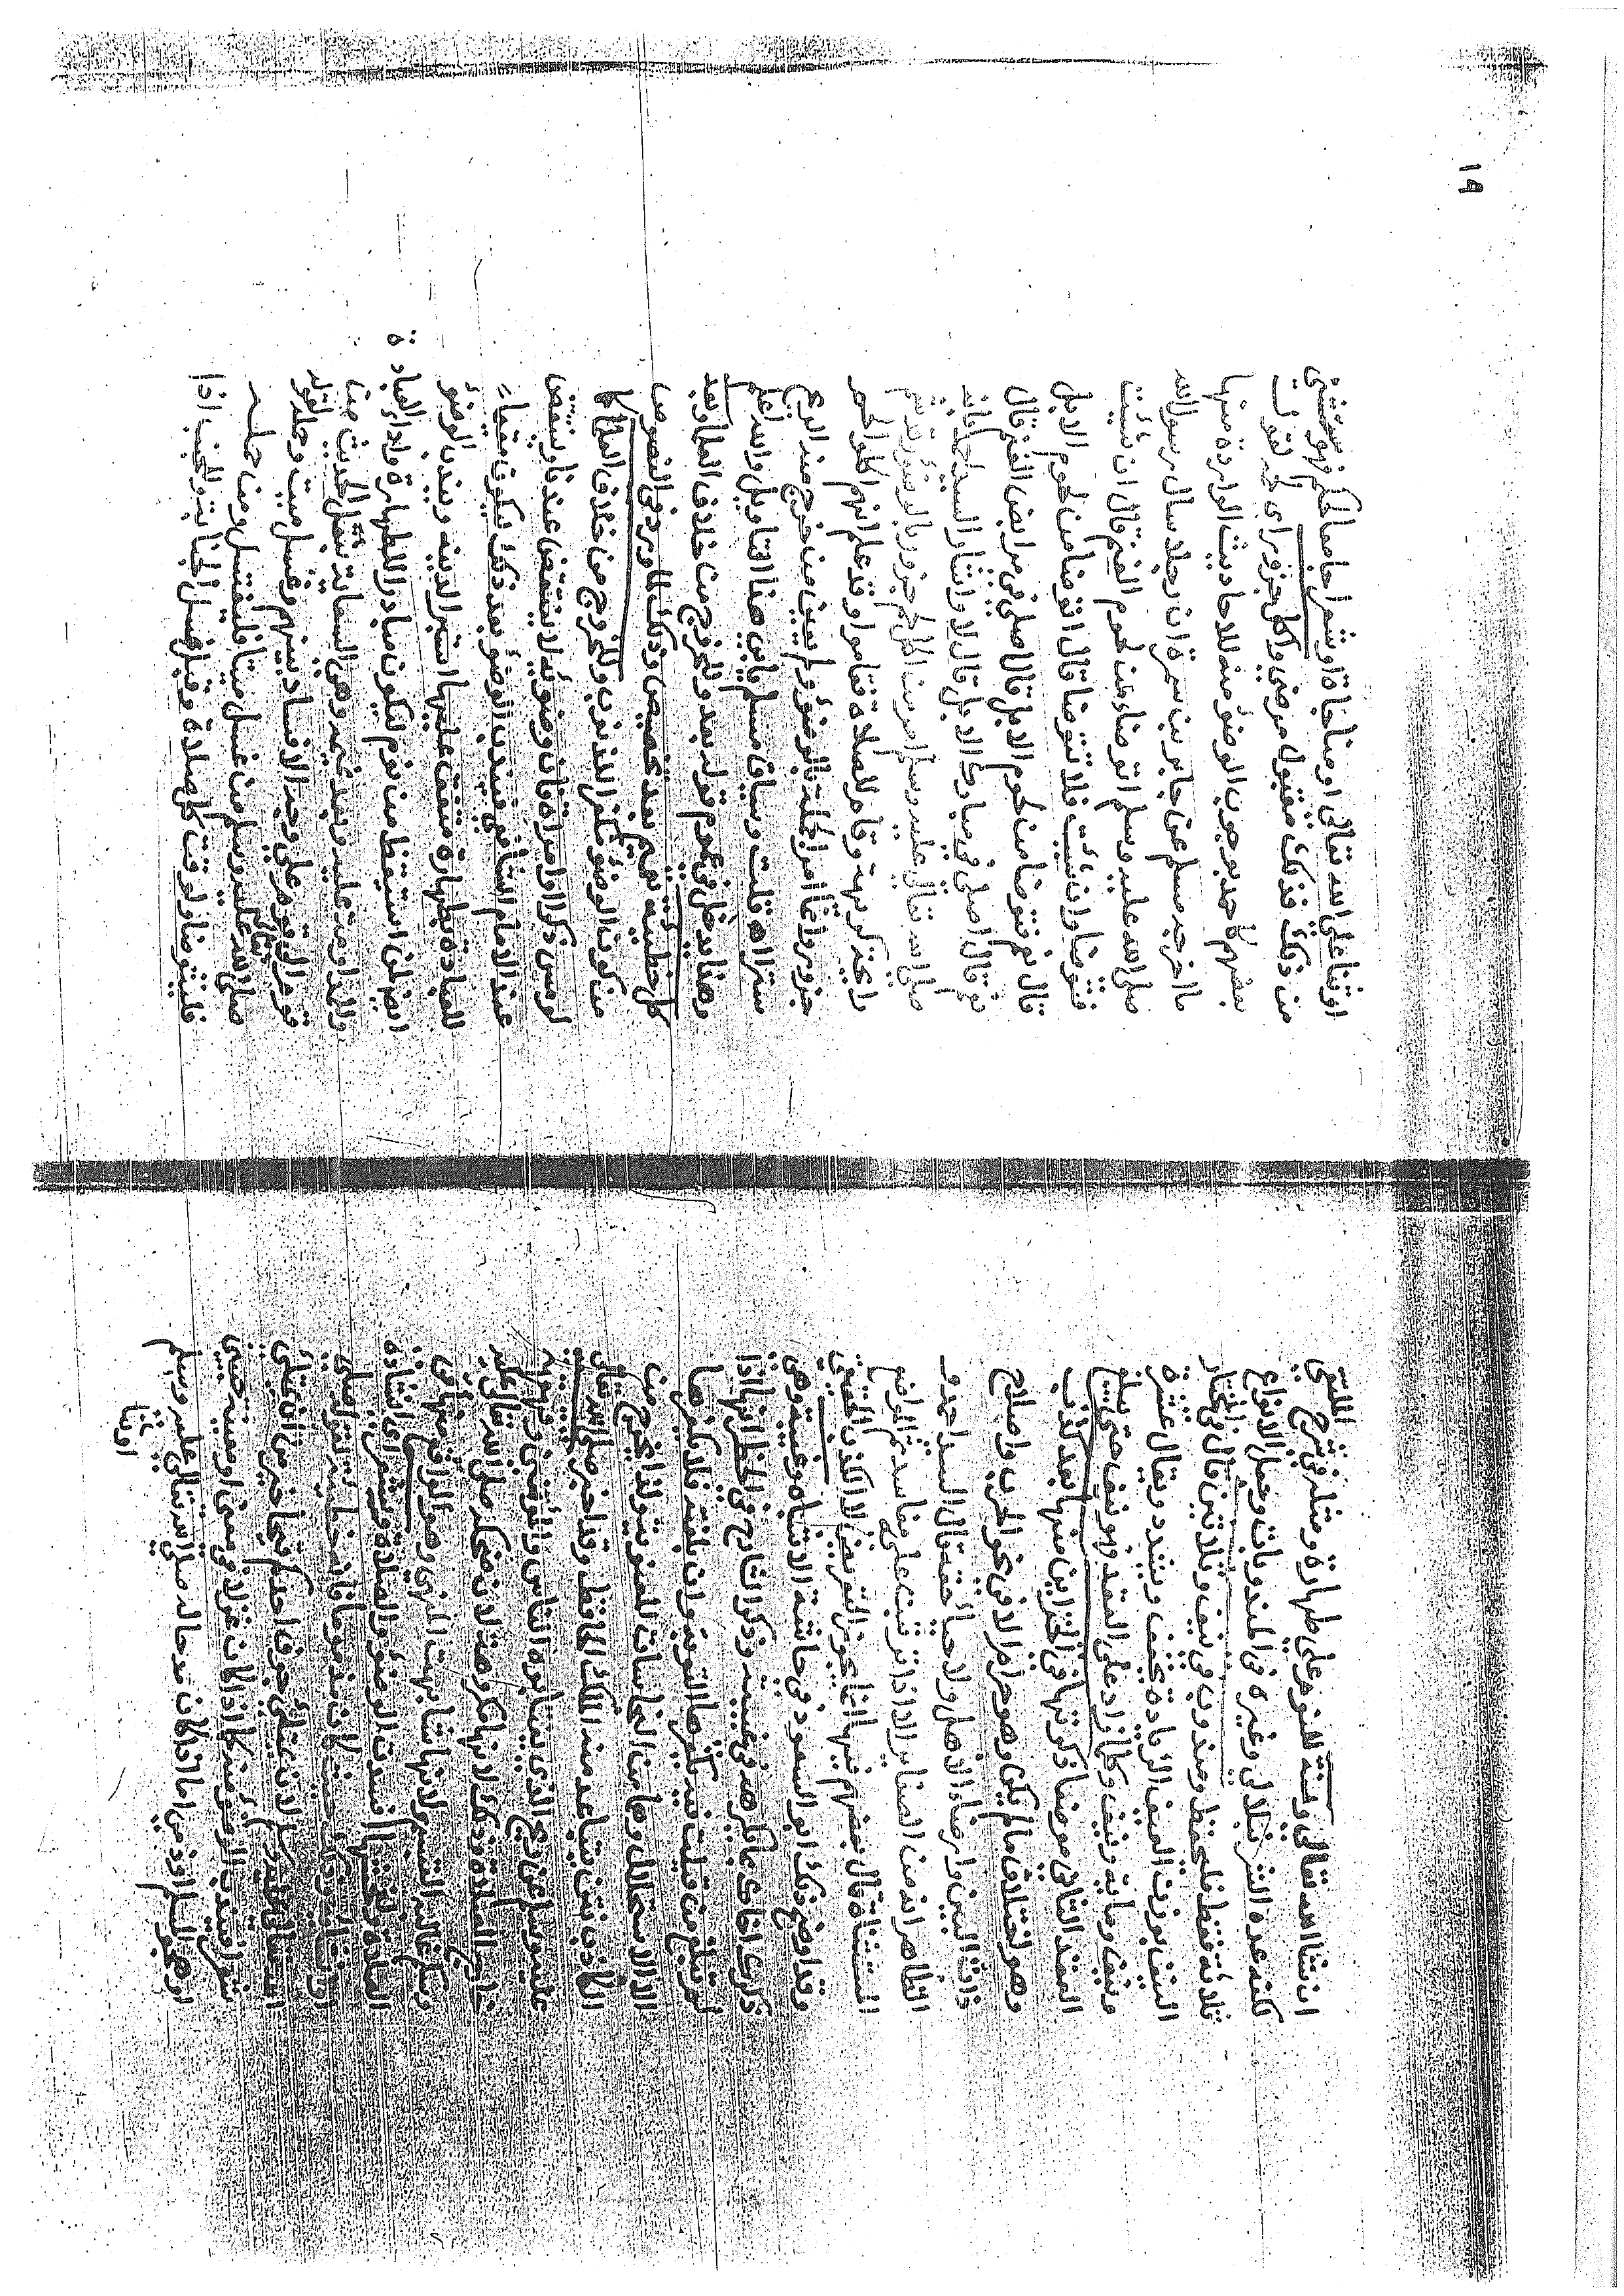 ١٩
ان شاء الله تعالى وسنة للنوم على طهارة ومثله في شرح الملتقى
لكنه عده الشرنبلالي وغيره في المندوبات وجعل الانواع
ثلاثة فقط فليحفظ ومندوب في نيف وثلاثين قال في المختار
النيف بوزن الهين الزيادة يخفف ويشدد ويقال عشرة
ونيف ومائة ونيف وكلما زاد على العقد فهو نيف حتى يبلغ
العقد الثاني موضعا ذكرتها في الخزاين منها بعد كذب
وهو اختلاق ما لم يكن وهو حرام الا في نحو الحرب واصلاح
ذات البين وارضاء الاهل ولاحياء حقه قال السيد احمد
الظاهر انه من الصغاير الا اذا ترتبت عليه مفاسد ثم المواضع
المستثناة قال بعضهم فيها انما يجوز التعريض لا الكذب الحقيقي
وقد اوضح ذلك ابو السعود في حاشية الاشباه وغيبة وهي
ذكرك اخاك بما يكرهه في غيبته وذكر الشارح في الحظر انها اذا
لم تبلغ من قيلت فيه يكفرها التوبة وان بلغته فلا يكفرها
الا الاستحلال وهما من النجاسات المعنوية ولذا يخرج من
الكاذب نتن يتباعد منه الملك الحافظ وقد اخبر صلى الله تعالى
عليه وسلم عن ريح الذي الناس والمؤمنين وقهقهة
خارج الصلاة وذلك لانها مكروهة لان ضحكه صلى الله تعالى عليه
وسلم غالبه التبسم ولانها شابهت وهو الواقع منها في
الصلاة افسدت الوضوء والصلاة وشعر اى انشاده
او انشائه وذلك حيث كان مذموما فانه خطيئة لقوله صلى
الله تعالى عليه وسلم لان يمتلئ جوف احدكم قيحا خير من ان يمتلئ
شعرا فيندب الوضوء منه كما اذا كان غزلا في معين او معينة حيين
او هجوا لمسلم او ذمي اما اذا كان مدحا له صلى الله تعالى عليه وسلم
اوثنا
اوثنا على الله تعالى او مناجاة او شعرا جامعا لحكم فهو مستثنى
من ذلك فذلك مقبول مرضي واكل جزور اى لحمه لقول
بعضهم كاحمد بوجوب الوضوء منه للاحاديث الواردة منها
ما اخرجه مسلم عن جابر بن سمرة ان رجلا سال رسول الله
صلى الله عليه وسلم اتوضا من لحوم الغنم قال ان شيت
فتوضا وان شيت فلا تتوضا قال اتوضا من لحوم الابل
قال نعم فتوضا من لحوم الابل قال اصلي في مرابض الغنم قال
نعم قال اصلي في مبارك الابل قال لا واشار السيد احمد
صلى الله تعالى عليه وسلم امر من اكل لحم جزور بالوضوء
رايحة كريهة وقام للصلاة فقاموا وقد علم انهم اكلوا لحم
جزور وانما امر الجملة بالوضوء ولم يعين من خرج منه الريح
سترا اه قلت وسياق مسلم يابى هذا التاويل والله اعلم
وهذا يدخل في عموم قوله بعد وللخروج من خلاف العلما وبعد
كل خطيئة تعميم بعد تخصيص وذلك لما ورد في النصوص من
من كون الوضوء يكفر الذنوب وللخروج من خلاف العلما كما
لو مس ذكره او امراة فان وضوئه لا ينتقض عندنا وينتقض
عند الامام الشافعي فيندب الوضوء بعد ذلك ليكون مقيما
للعبادة بطهارة متفق عليها استبرا لدينه ويندب الوضوء
ايضا لمن استيقظ من نوم ليكون مبادرا للطهارة واداء العبادة
وللمداومة عليه وبعد غيبة
غسل ميت وحمله لقوله
صلى الله تعالى عليه وسلم من غسل ميتا فليغتسل ومن حمله
فليتوضا ولوقت كل صلاة وقبل غسل الجنابة وللجنب اذا